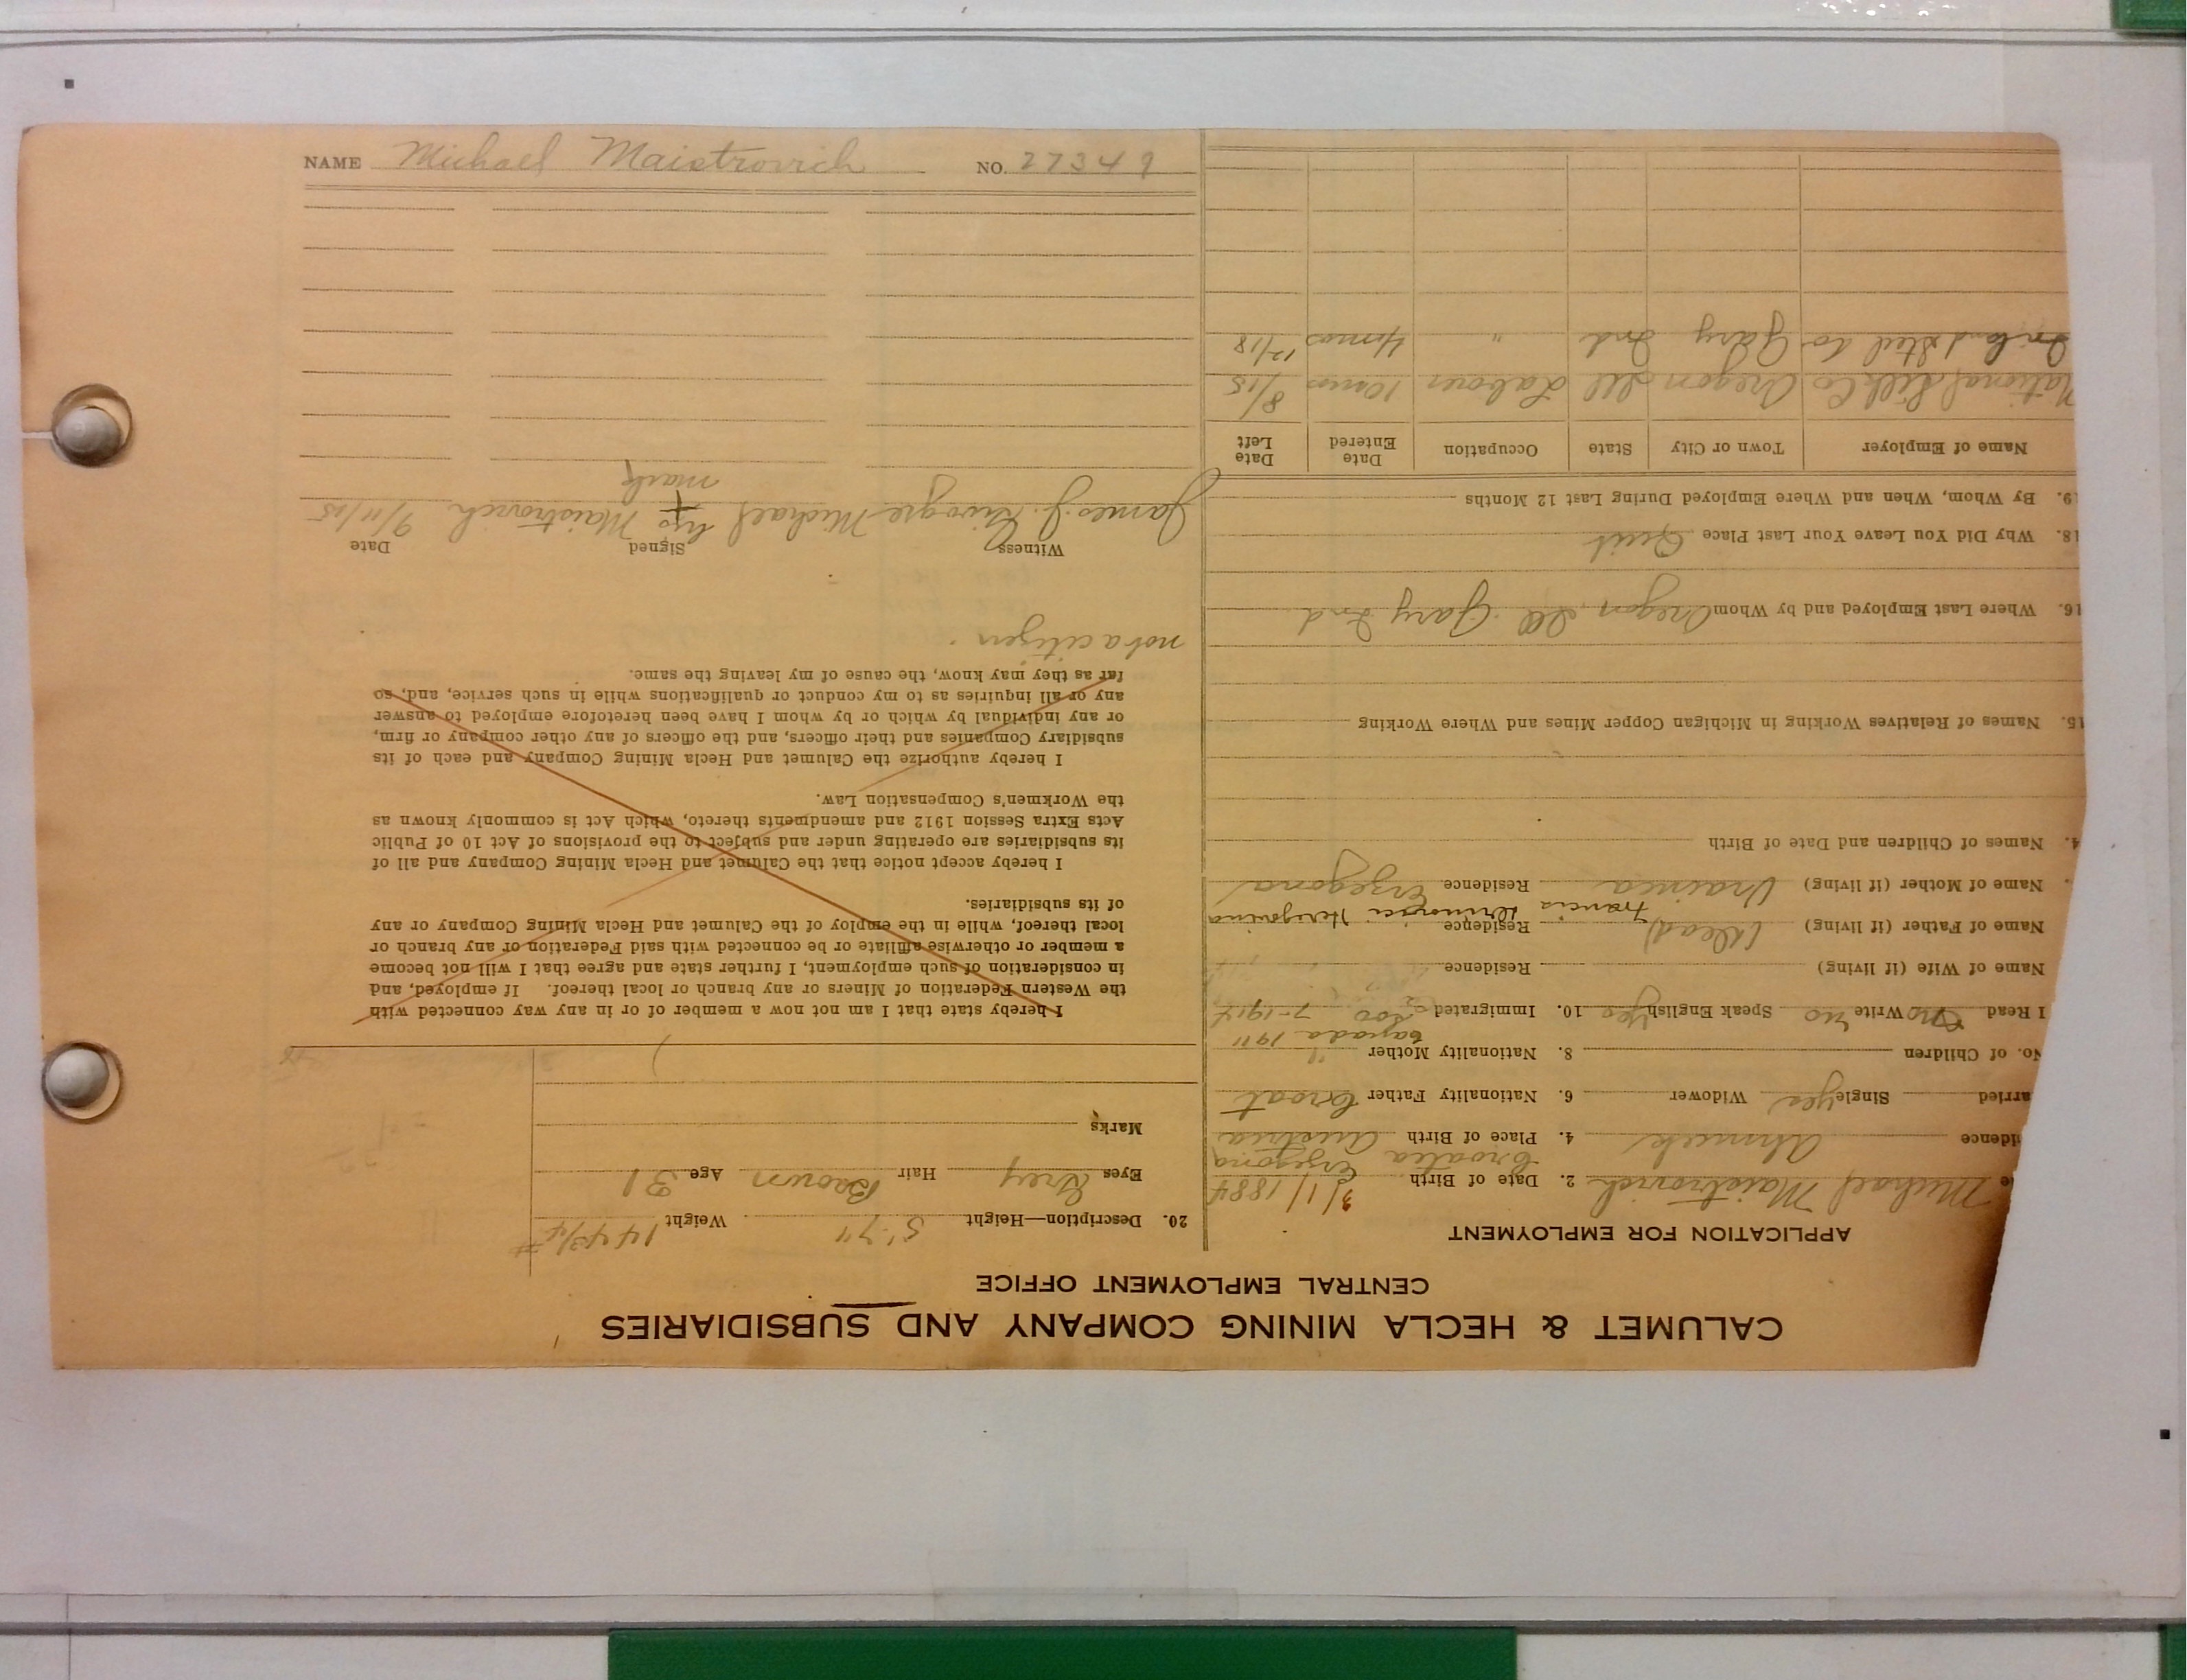 NAME Michael Maistrovich NO. 27349
CALUMET & HECLA MINING COMPANY AND SUBSIDIARIES
CENTRAL EMPLOYMENT OFFICE
APPLICATION FOR EMPLOYMENT
e Michael Maistrovich 2. Date of Birth 3/1/1884
Croatia
idence Ahmeek 4. Place of Birth Austria
arried Single yes Widower 6. Nationality Father Croat
No. of Children 8. Nationality Mother "
Canada 1911
I Read no Write no Speak English yes 10. Immigrated Soo 7-1914
Name of Wife (if living) Residence
Name of Father (if living) (Dead) Residence
Francis Hercegovina
Name of Mother (if living) Residence
4. Names of Children and Date of Birth
15. Names of Relatives Working in Michigan Copper Mines and Where Working
16. Where Last Employed and by Whom Oregon Ill Gary Ind
18. Why Did You Leave Your Last Place Quit
19. By Whom, When and Where Employed During Last 12 Months
Name of Employer Town or City State Occupation Date Entered Date Left
National Silk Co Oregon Ill Labour 10 mos 8/15
Inland Steel Co Gary Ind " 4 mos 12/18
20. Description—Height 5'7" Weight 144 3/4 #
Eyes Grey Hair Brown Age 31
Marks
I hereby state that I am not now a member of or in any way connected with
the Western Federation of Miners or any branch or local thereof. If employed, and
in consideration of such employment, I further state and agree that I will not become
a member or otherwise affiliate or be connected with said Federation or any branch or
local thereof, while in the employ of the Calumet and Hecla Mining Company or any
of its subsidiaries.
I hereby accept notice that the Calumet and Hecla Mining Company and all of
its subsidiaries are operating under and subject to the provisions of Act 10 of Public
Acts Extra Session 1912 and amendments thereto, which Act is commonly known as
the Workmen's Compensation Law.
I hereby authorize the Calumet and Hecla Mining Company and each of its
subsidiary Companies and their officers, and the officers of any other company or firm,
or any individual by which or by whom I have been heretofore employed to answer
any or all inquiries as to my conduct or qualifications while in such service, and, so
far as they may know, the cause of my leaving the same.
not a citizen.
Witness Signed Date
James J. Michael his Maistrovich 9/11/15
mark